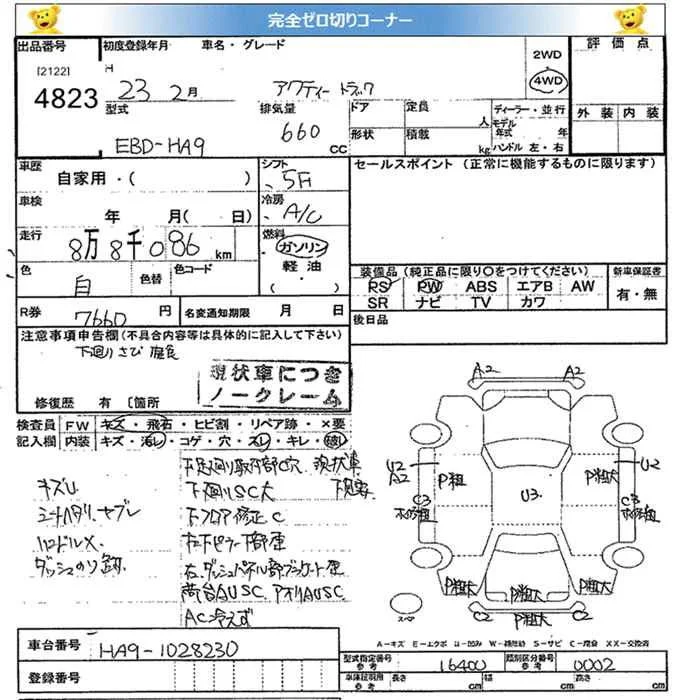 完全ゼロ切りコーナー
出品番号 初度登録年月 車名・グレード 評価点
[2122] H 2WD
4823 23 2月 アクティー トラック 4WD
型式 排気量 ドア 定員 ディーラー・並行 外装 内装
EBD-HA9 660 cc 人 モデル年式 年
形状 積載 kg ハンドル 左・右
車歴 シフト セールスポイント (正常に機能するものに限ります)
自家用・( ) 5F
車検 冷房
年 月( 日) A/C
走行 燃料
8万8千086 km ガソリン
色 色替 色コード 軽油
白 (・) 装備品 (純正品に限り○をつけてください) 新車保証書
PS PW ABS エアB AW 有・無
R券 7660円 名変通知期限 月 日 SR ナビ TV カワ
後日品
注意事項申告欄 (不具合内容等は具体的に記入して下さい)
下廻りさび腐食
現状車につき
ノークレーム
修復歴 有 [箇所
検査員 FW キズ・飛石・ヒビ割・リペア跡・×要
記入欄 内装 キズ・汚レ・コゲ・穴・スレ・キレ・破レ
A2 A2
キズU 下廻りSC大
U2 P粗 P粗大 U2
A2 U3
C3 C3
ハンドルX
AC冷えず
P粗大 P粗大 P粗大
C2 P粗大 C2
スペア
A-キズ E-エクボ U-凹み W-補修跡 S-サビ C-腐食 XX-交換済
車台番号 HA9-1028230
型式指定番号 参考 16400 類別区分番号 参考 0002
登録番号
車庫証明用 参考 長さ cm 幅 cm 高さ cm